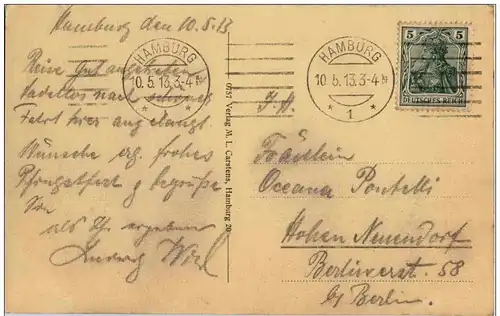 Hamburg den 10.5.13
Reise gut angetreten
tadellos nach
Fahrt hier angelangt.
Wünsche frohes
Pfingstfest & begrüße
Sie
als Ihr ergebener
Ludwig
HAMBURG
10.5.13.3-4N
* 1 *
HAMBURG
10.5.13.3-4N
* 1 *
5 5
DEUTSCHES REICH
0757 Verlag M. L. Carstens, Hamburg 20
Fräulein
Oceana Pontelli
Hohen Neuendorf
Berlinerst. 58
b/ Berlin.